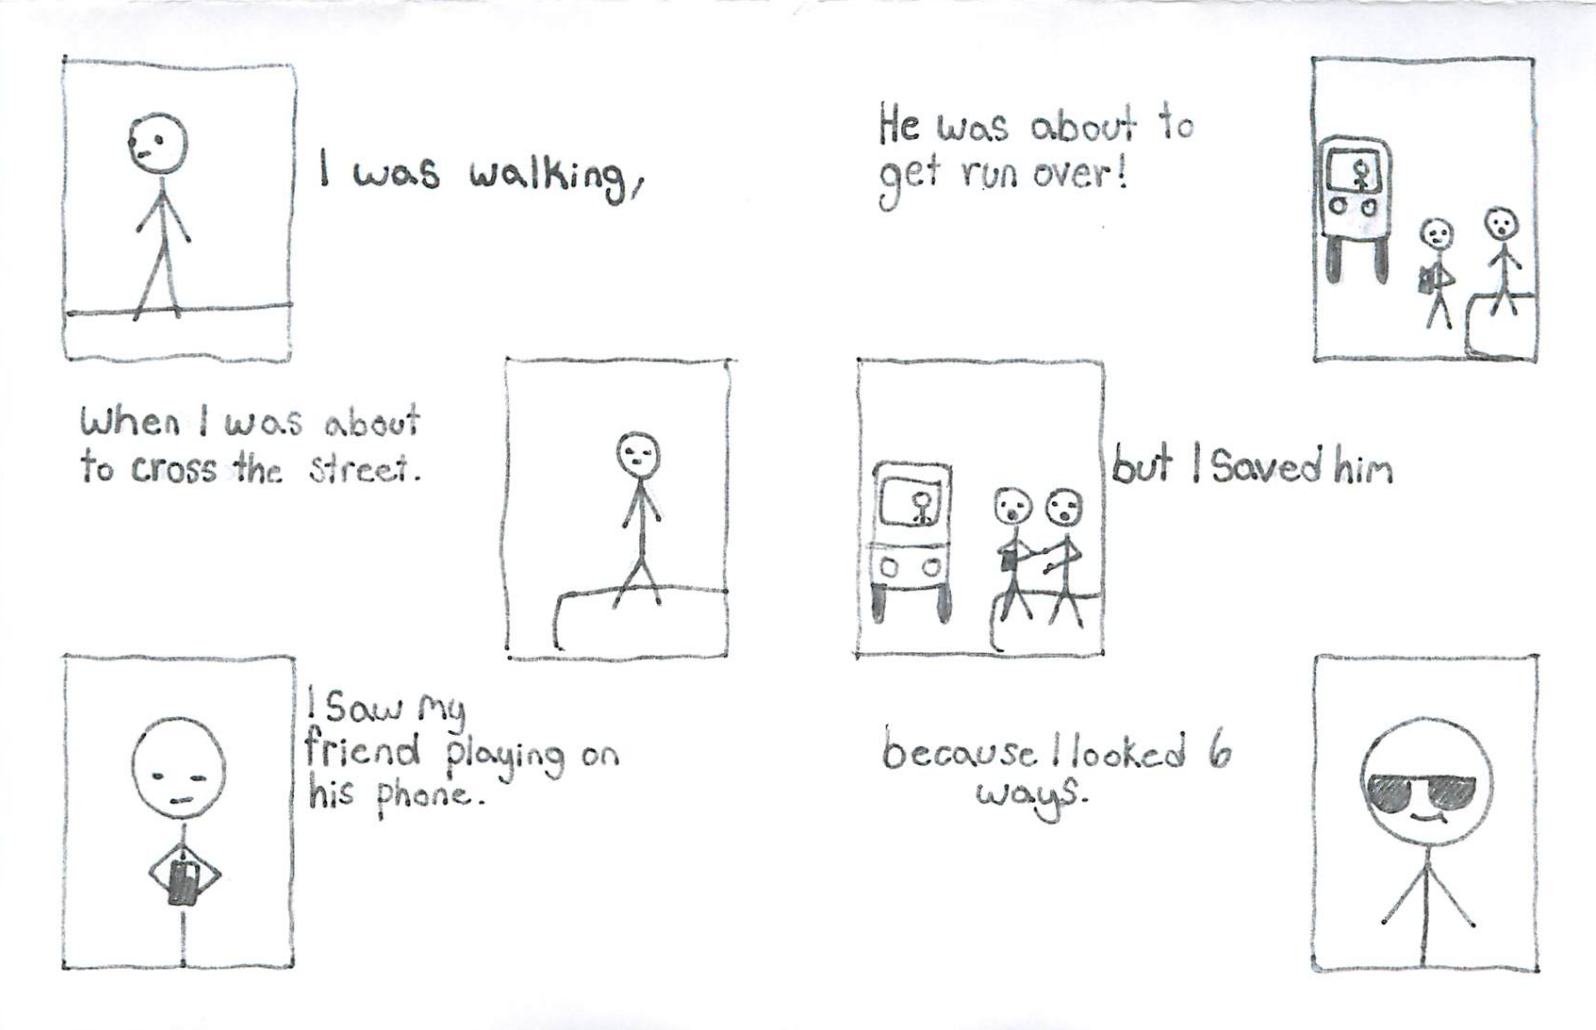 I was walking,
When I was about
to cross the street.
I saw my
friend playing on
his phone.
He was about to
get run over!
but I saved him
because I looked 6
ways.